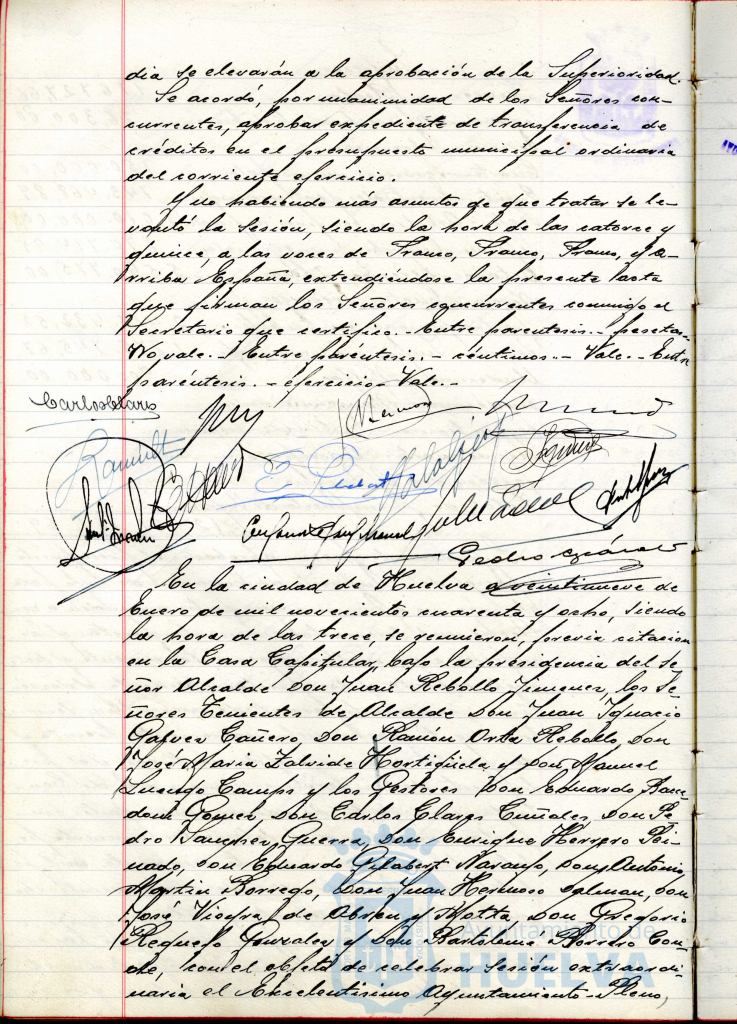 dia se elevarán a la aprobación de la Superioridad.
Se acordó, por unanimidad de los Señores con-
currentes, aprobar expediente de transferencia de
créditos en el presupuesto municipal ordinario
del corriente ejercicio.
Y no habiendo más asuntos de que tratar se le-
vantó la sesión, siendo la hora de las catorce y
quince, a las voces de Franco, Franco, Franco, y A-
rriba España, extendiéndose la presente acta
que firman los Señores concurrentes conmigo el
Secretario que certifico.- Entre parentesis.- pesetas-
No vale.- Entre paréntesis.- céntimos.- Vale.- Entre
paréntesis.- ejercicio- Vale.-
Carlos Clares
E. Gilabert
Pedro
En la ciudad de Huelva a veintinueve de
Enero de mil novecientos cuarenta y ocho, siendo
la hora de las trece, se reunieron, previa citación
en la Casa Capitular, bajo la presidencia del Se-
ñor Alcalde Don Juan Rebollo Jimenez, los Se-
ñores Tenientes de Alcalde Don Juan Ignacio
Galvez Cañero, Don Ramón Orta Rebollo, Don
José Maria Zalvide Hortigüela y Don Manuel
Luengo Camps y los Gestores Don Eduardo
Gomez, Don Carlos Clares Don Pe-
dro Sanchez Guerra, Don Enrique Herrero Pei-
nado, Don Eduardo Gilabert Naranjo, Don Antonio
Martin Borrego, Don Juan Hermoso Don
José Vieyra de Abreu y Motta, Don Gregorio
Requejo Gonzalez y Don Bartolomé Borrero Con-
de, con el objeto de celebrar sesión extraordi-
naria el Excelentisimo Ayuntamiento Pleno,
Ayuntamiento de
HUELVA